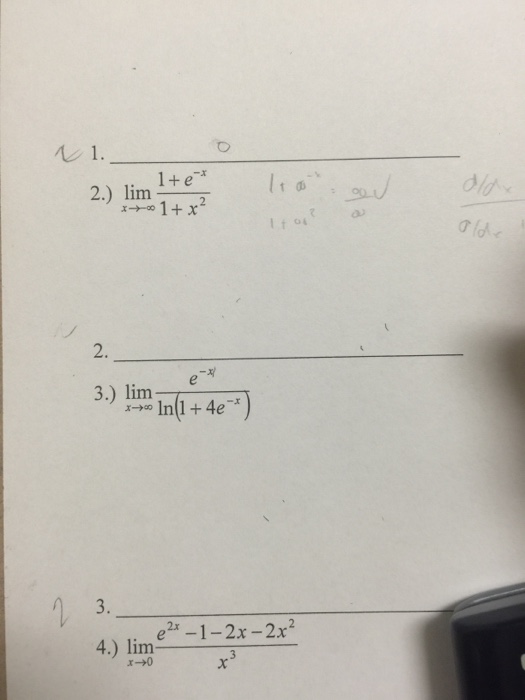 1. 0
2.) lim x→-∞ (1+e^-x)/(1+x²)
2.
3.) lim x→∞ e^-x/ln(1+4e^-x)
3.
4.) lim x→0 (e^2x -1-2x-2x²)/x³